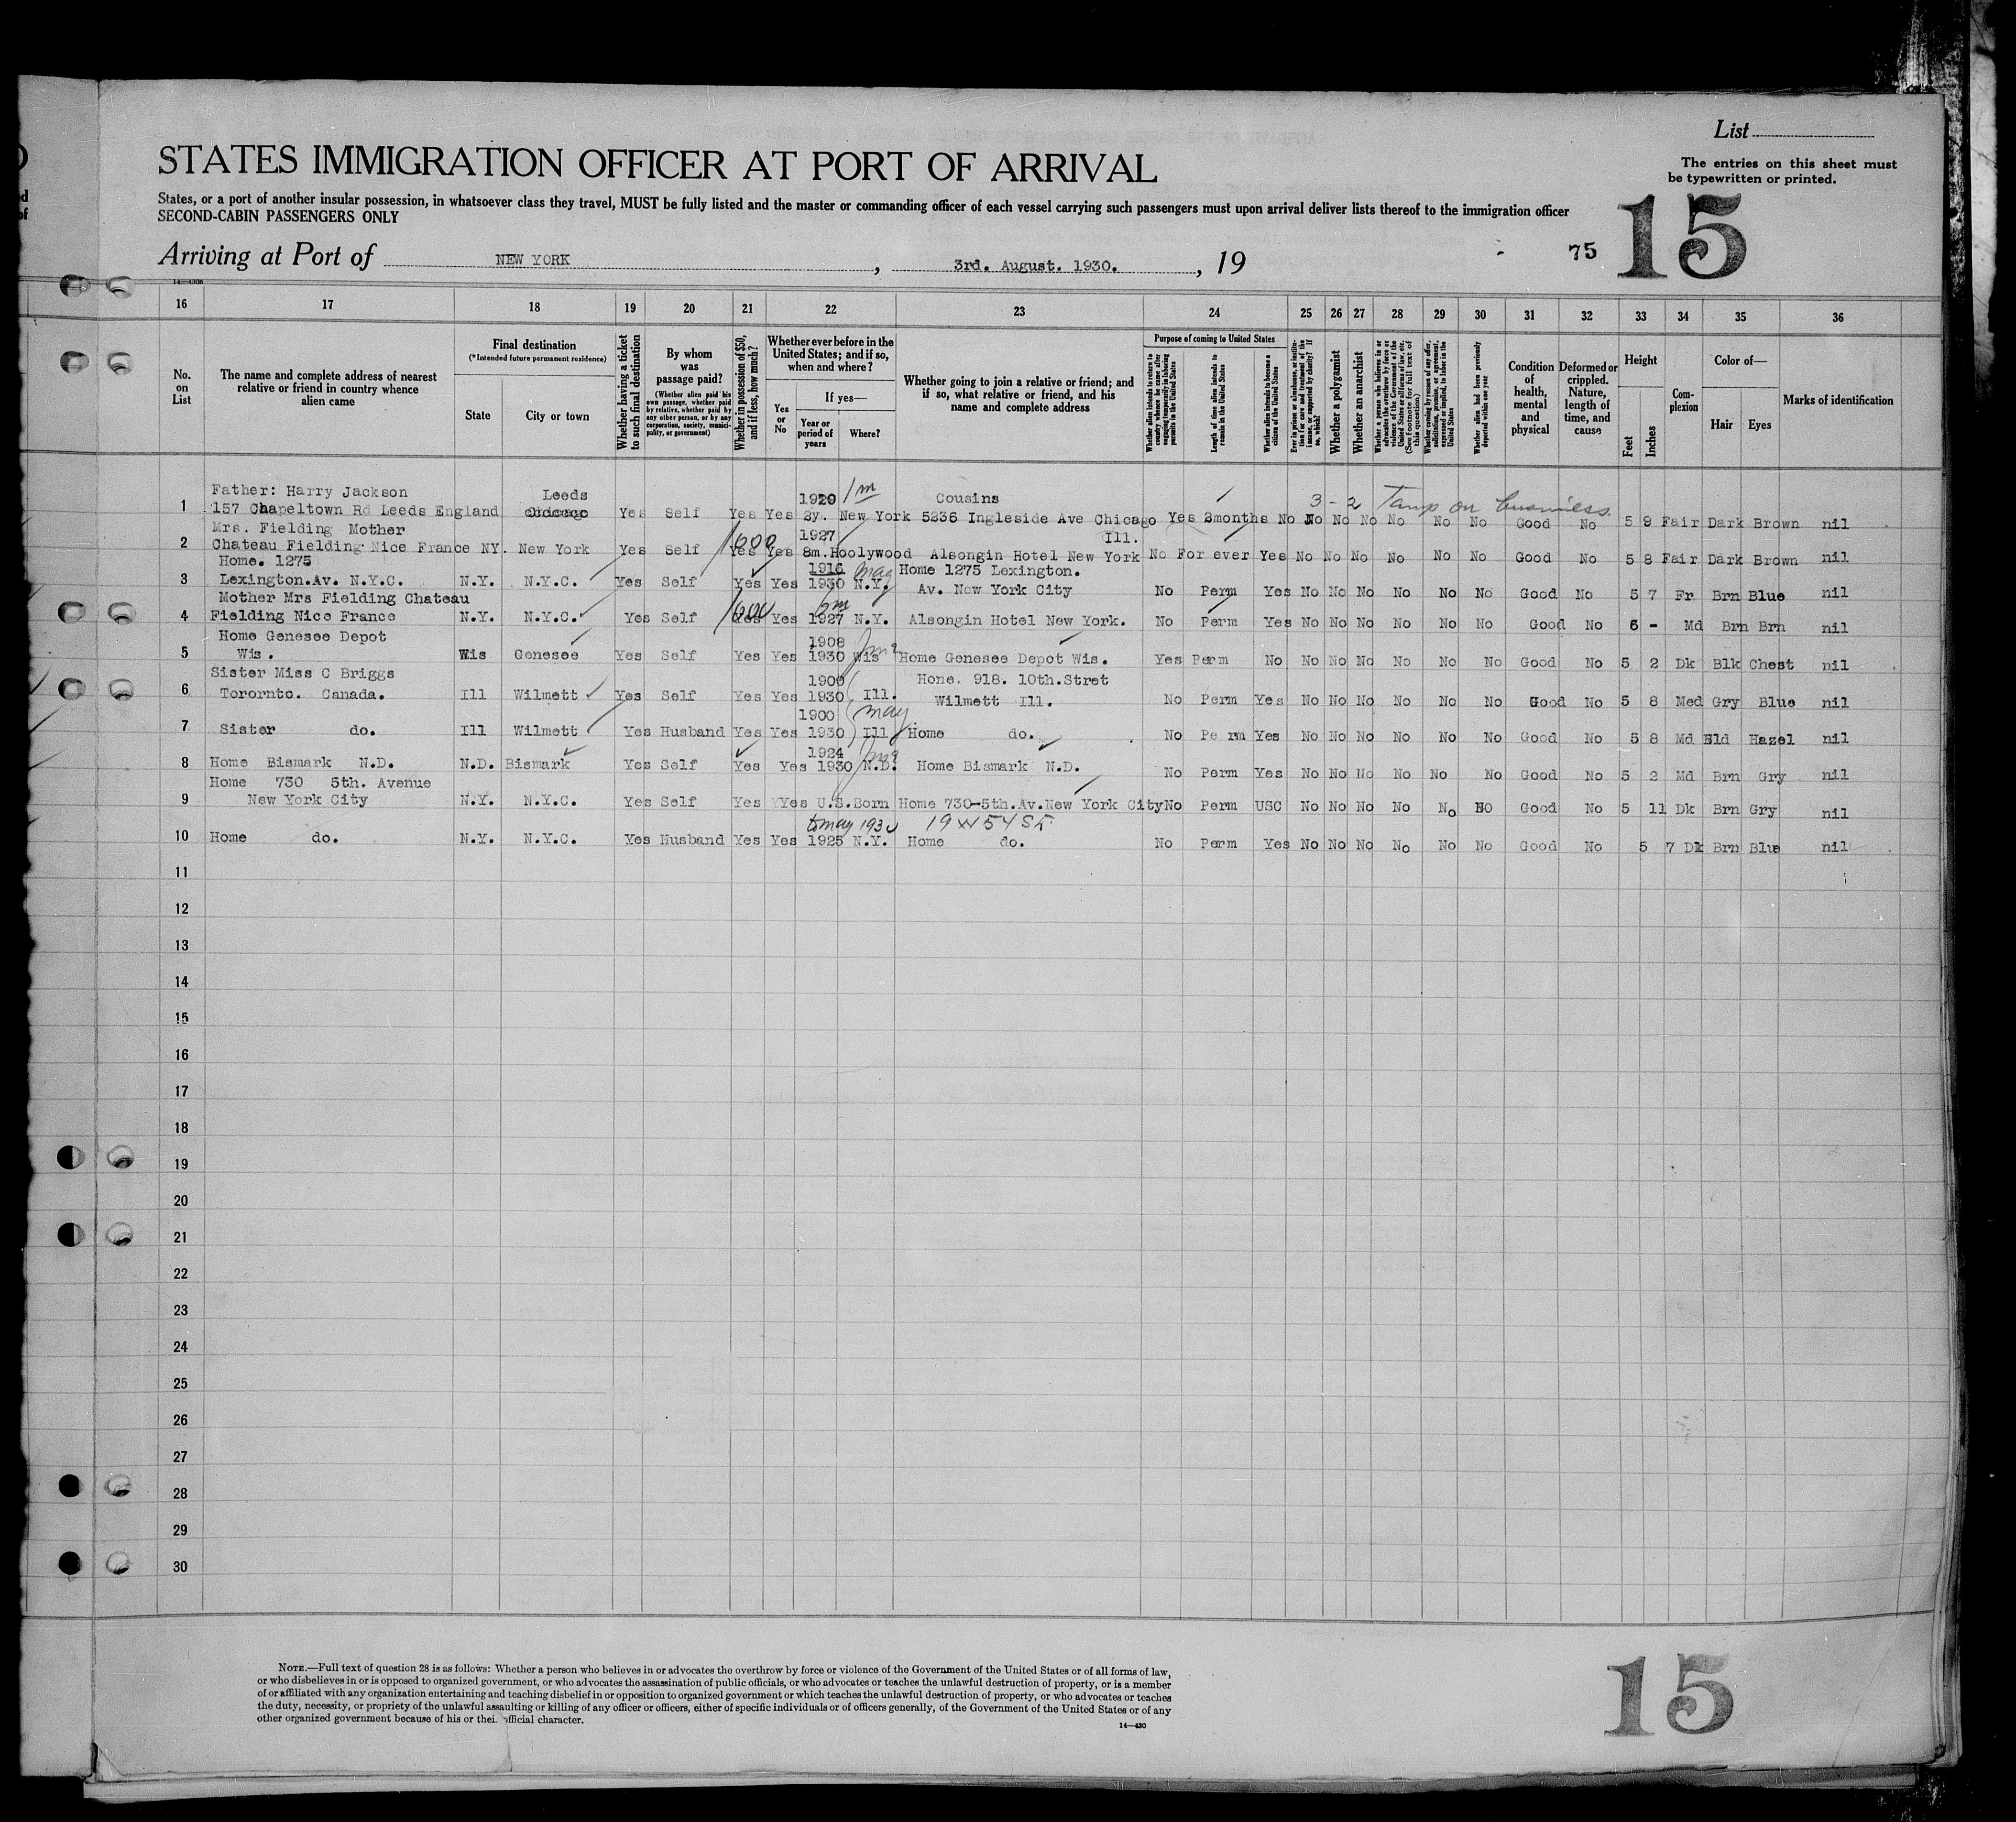 List
The entries on this sheet must
be typewritten or printed.
STATES IMMIGRATION OFFICER AT PORT OF ARRIVAL
States, or a port of another insular possession, in whatsoever class they travel, MUST be fully listed and the master or commanding officer of each vessel carrying such passengers must upon arrival deliver lists thereof to the immigration officer
SECOND-CABIN PASSENGERS ONLY
15
Arriving at Port of NEW YORK, 3rd. August. 1930., 19
75
16 17 18 19 20 21 22 23 24 25 26 27 28 29 30 31 32 33 34 35 36
No. on List
The name and complete address of nearest relative or friend in country whence alien came
Final destination
(*Intended future permanent residence)
State
City or town
Whether having a ticket to such final destination
By whom was passage paid?
(Whether alien paid his own passage, whether paid by relative, whether paid by any other person, or by any corporation, society, municipality, or government)
Whether in possession of $50, and if less, how much?
Whether ever before in the United States; and if so, when and where?
Yes or No
If yes—
Year or period of years
Where?
Whether going to join a relative or friend; and if so, what relative or friend, and his name and complete address
Purpose of coming to United States
Whether alien intends to return to country whence he came after engaging temporarily in laboring pursuits in the United States
Length of time alien intends to remain in the United States
Whether alien intends to become a citizen of the United States
Ever in prison or almshouse, or institution for care and treatment of the insane, or supported by charity? If so, which?
Whether a polygamist
Whether an anarchist
Whether a person who believes in or advocates the overthrow by force or violence of the Government of the United States or all forms of law, etc. (See footnote for full text of this question)
Whether coming by reason of any offer, solicitation, promise, or agreement, expressed or implied, to labor in the United States
Whether alien had been previously deported within one year
Condition of health, mental and physical
Deformed or crippled. Nature, length of time, and cause
Height
Feet
Inches
Complexion
Color of—
Hair
Eyes
Marks of identification
Father: Harry Jackson Leeds 1929 1m Cousins 3-2 Temp on business
1 157 Chapeltown Rd Leeds England Chicago Yes Self Yes Yes 2y. New York 5236 Ingleside Ave Chicago Yes 2months No No No No No No No Good No 5 9 Fair Dark Brown nil
Mrs. Fielding Mother 1600 1927 Ill.
2 Chateau Fielding Nice France NY. New York Yes Self Yes Yes 8m. Hoolywood Alsongin Hotel New York No For ever Yes No No No No No No Good No 5 8 Fair Dark Brown nil
Home. 1275 1916 May Home 1275 Lexington.
3 Lexington.Av. N.Y.C. N.Y. N.Y.C. Yes Self Yes Yes 1930 N.Y. Av. New York City No Perm Yes No No No No No No Good No 5 7 Fr Brn Blue nil
Mother Mrs Fielding Chateau 1600
4 Fielding Nice France N.Y. N.Y.C. Yes Self Yes Yes 1927 N.Y. Alsongin Hotel New York. No Perm Yes No No No No No No Good No 6 - Md Brn Brn nil
Home Genesee Depot 1908
5 Wis. Wis Genesee Yes Self Yes Yes 1930 Wis Home Genesee Depot Wis. Yes Perm No No No No No No No Good No 5 2 Dk Blk Chest nil
Sister Miss C Briggs 1900 Hone. 918. 10th.Stret
6 Torornto. Canada. Ill Wilmett Yes Self Yes Yes 1930 Ill. Wilmett Ill. No Perm Yes No No No No No No Good No 5 8 Med Gry Blue nil
1900 May
7 Sister do. Ill Wilmett Yes Husband Yes Yes 1930 Ill Home do. No Pe rm Yes No No No No No No Good No 5 8 Md Bld Hazel nil
1924
8 Home Bismark N.D. N.D. Bismark Yes Self Yes Yes 1930 N.D. Home Bismark N.D. No Perm Yes No No No No No No Good No 5 2 Md Brn Gry nil
Home 730 5th. Avenue
9 New York City N.Y. N.Y.C. Yes Self Yes Yes U.S.Born Home 730-5th.Av.New York City No Perm USC No No No No No NO Good No 5 11 Dk Brn Gry nil
to May 1930 19 W 54 St.
10 Home do. N.Y. N.Y.C. Yes Husband Yes Yes 1925 N.Y. Home do. No Perm Yes No No No No No No Good No 5 7 Dk Brn Blue nil
11
12
13
14
15
16
17
18
19
20
21
22
23
24
25
26
27
28
29
30
NOTE.—Full text of question 28 is as follows: Whether a person who believes in or advocates the overthrow by force or violence of the Government of the United States or of all forms of law,
or who disbelieves in or is opposed to organized government, or who advocates the assassination of public officials, or who advocates or teaches the unlawful destruction of property, or is a member
of or affiliated with any organization entertaining and teaching disbelief in or opposition to organized government or which teaches the unlawful destruction of property, or who advocates or teaches
the duty, necessity, or propriety of the unlawful assaulting or killing of any officer or officers, either of specific individuals or of officers generally, of the Government of the United States or of any
other organized government because of his or thei official character.
14—430
15